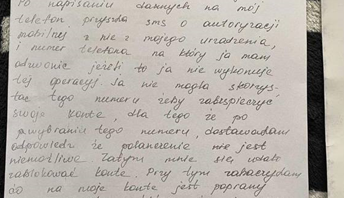 Po napisaniu dannych na mój
telefon przyszła sms o autoryzacji
mobilnej z nie z mojego urządzenia,
i numer telefona na który ja mam
zdwonic jeżeli to ja nie wykonuję
tej operacji ja nie mogła skorzys-
tac tego numeru żeby zabezpieczyć
swoje konte, dla tego że po
wybraniu tego numeru, dostawałam
odpowiedź że połączenie nie jest
niemożliwe Zatym mnie się udało
zablokować konte. Przy tym zobaczyłam
co na moje konte jest poprawny